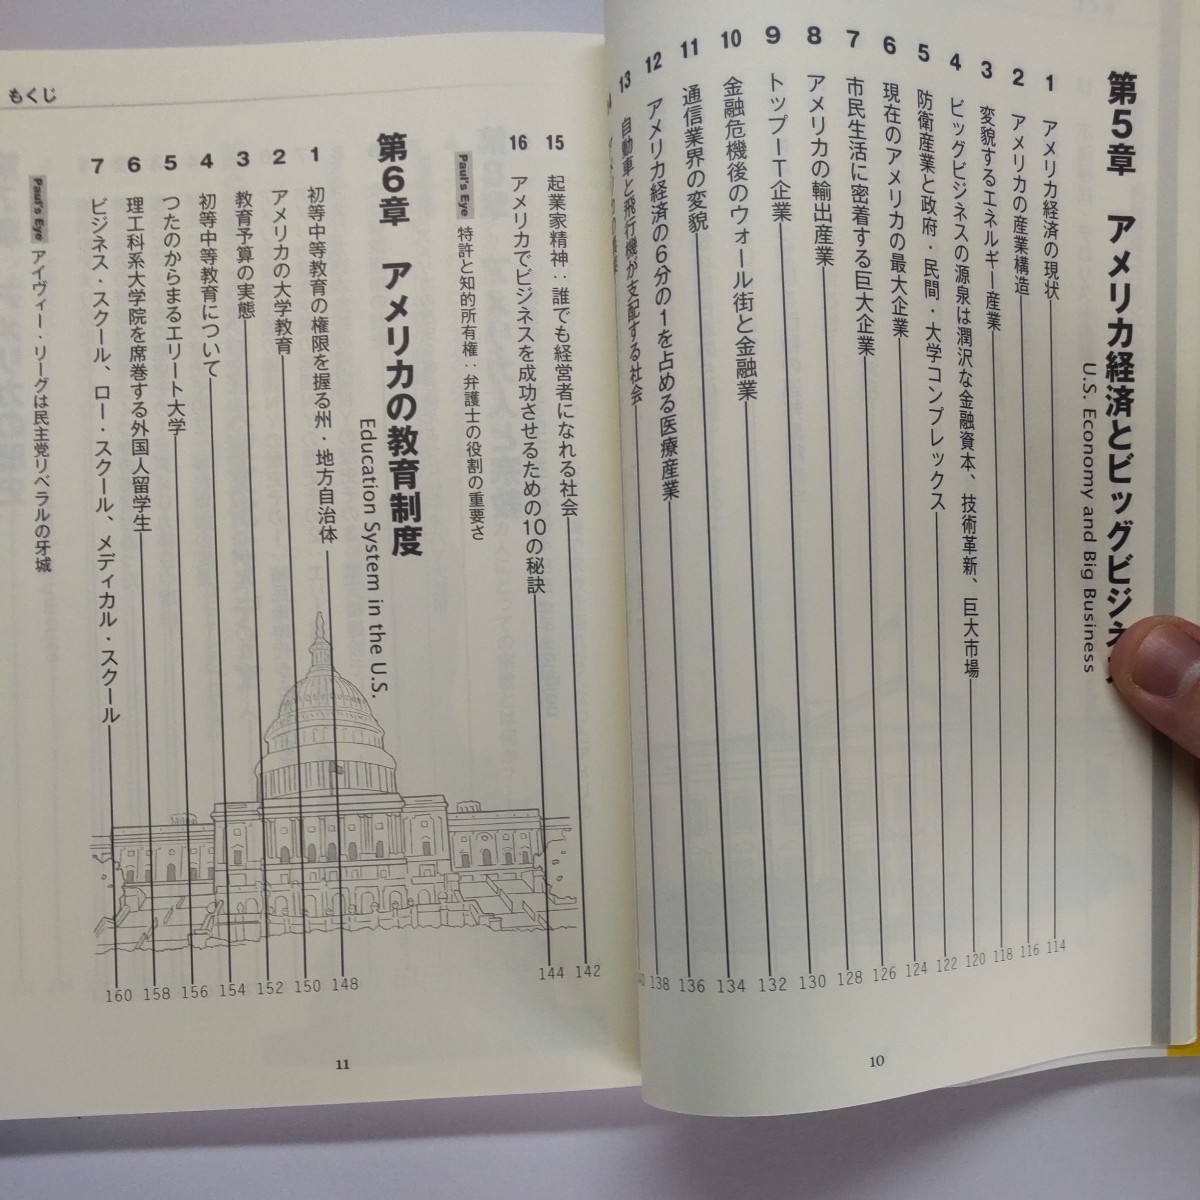 第5章 アメリカ経済とビッグビジネス
U.S. Economy and Big Business
1 アメリカ経済の現状 114
2 アメリカの産業構造 116
3 変貌するエネルギー産業 118
4 ビッグビジネスの源泉は潤沢な金融資本、技術革新、巨大市場 120
5 防衛産業と政府・民間・大学コンプレックス 122
6 現在のアメリカの最大企業 124
7 市民生活に密着する巨大企業 126
8 アメリカの輸出産業 128
9 トップIT企業 130
10 金融危機後のウォール街と金融業 132
11 通信業界の変貌 134
12 アメリカ経済の6分の1を占める医療産業 136
13 自動車と飛行機が支配する社会 138
10
もくじ
15 起業家精神:誰でも経営者になれる社会 142
16 アメリカでビジネスを成功させるための10の秘訣 144
Paul's Eye 特許と知的所有権:弁護士の役割の重要さ
第6章 アメリカの教育制度
Education System in the U.S.
1 初等中等教育の権限を握る州・地方自治体 148
2 アメリカの大学教育 150
3 教育予算の実態 152
4 初等中等教育について 154
5 つたのからまるエリート大学 156
6 理工科系大学院を席巻する外国人留学生 158
7 ビジネス・スクール、ロー・スクール、メディカル・スクール 160
Paul's Eye アイヴィー・リーグは民主党リベラルの牙城
11